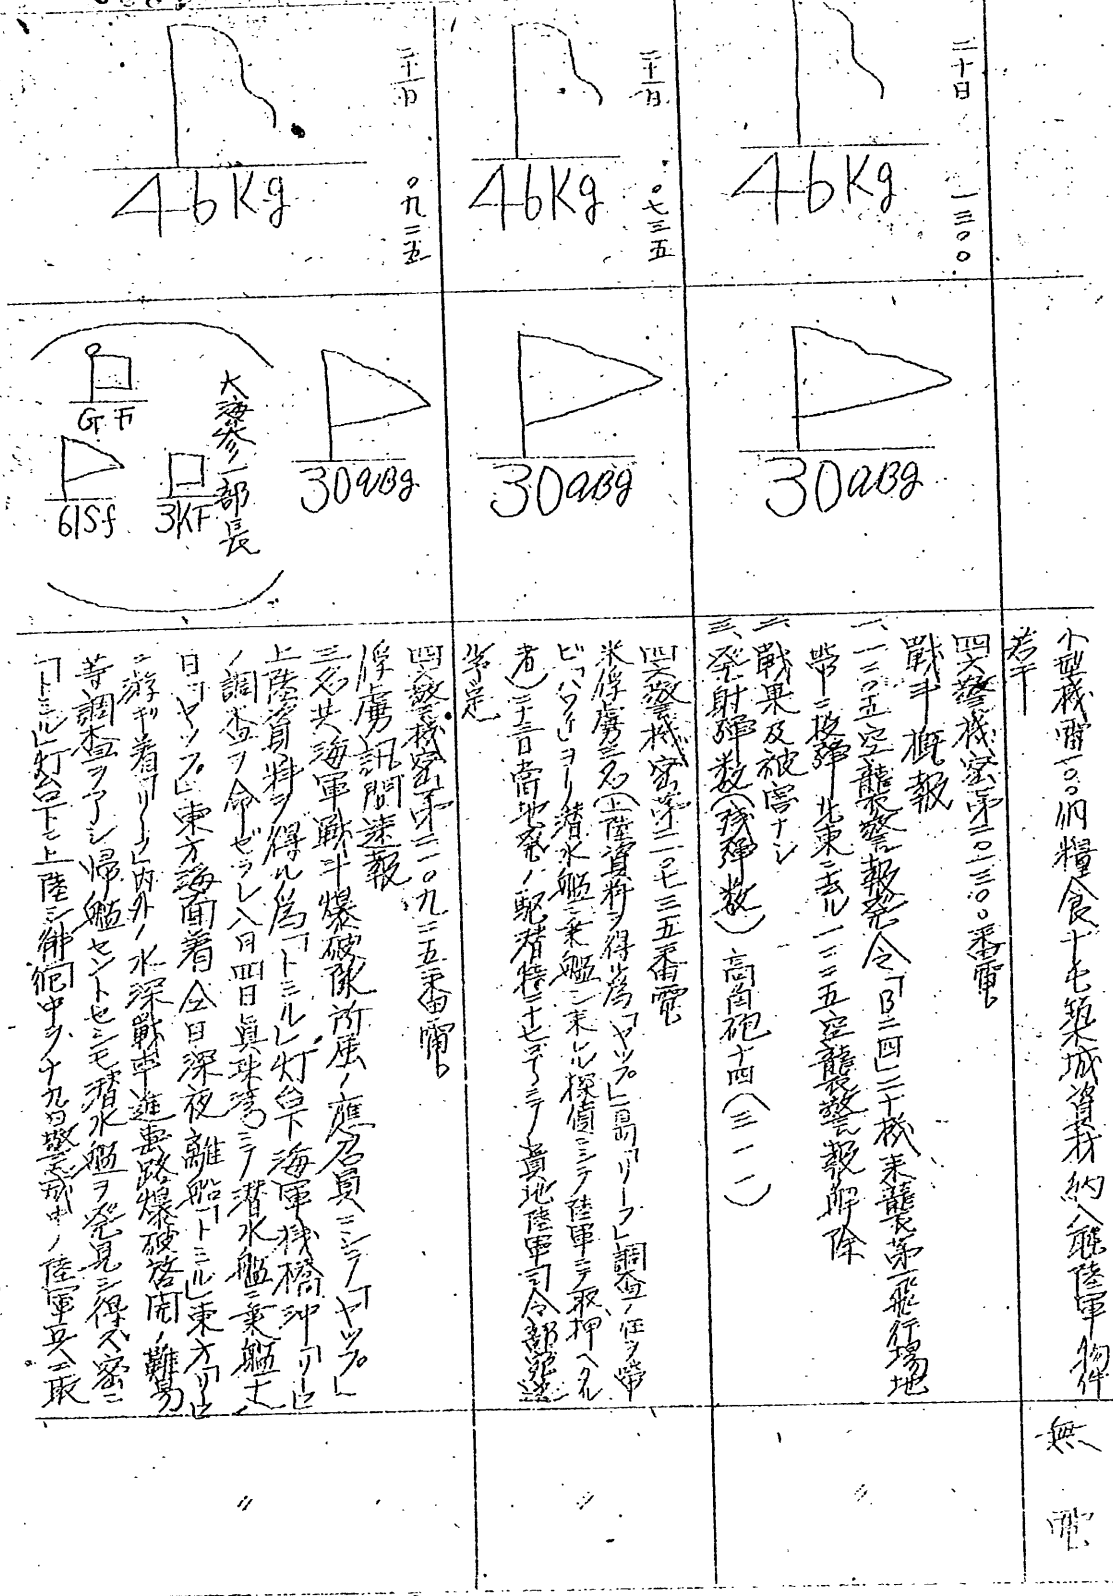 小型機雷一〇〇個糧食十屯築城資材納入艇陸軍物件
若干
無電
二十日 一三〇〇
46Kg
30aBg
四六警機密第二〇一三〇〇番電
戦斗概報
一、一二〇五空襲警報発令「B二四」二十機来襲第一飛行場地
帯ニ投弾北東ニ去ル一二二五空襲警報解除
二、戦果及被害ナシ
三、発射弾数(残弾数)高角砲十四(三一一)
〃
二十一日 〇七三五
46Kg
30aBg
四六警機密第二一〇七三五番電
米俘虜三名(上陸資料ヲ得ル為「ヤップ」島「リーフ」調査ノ任ヲ帯
ビ「ハワイ」ヨリ潜水艦ニ乗艦シ来レル探偵ニシテ陸軍ニテ取押ヘタル
者)二十三日当地発ノ駆潜特二十七号ニテ貴地陸軍司令部宛送
ノ予定
〃
二十一日 〇九二五
46Kg
30aBg
大海参一部長
GF
3KF
61Sf
四六警機密第二一〇九二五番電
俘虜訊問速報
三名共海軍戦斗爆破隊所属ノ應召員ニシテ「ヤップ」
上陸資料ヲ得ル為「トミル」灯台下海軍桟橋沖「リーフ」
ノ調査ヲ命ゼラレ八月四日真珠湾ニテ潜水艦ニ乗艦十八
日「ヤップ」東方海面着仝日深夜離船「トミル」東方「リーフ」
ニ游ギ着「リーフ」内外ノ水深戦車進出路爆破啓開ノ難易
等調査ヲ了シ帰艦セントセシモ潜水艦ヲ発見シ得ズ密ニ
「トミル」灯台下ニ上陸シ彷徨中ヲ十九日警戒中ノ陸軍兵ニ取
〃